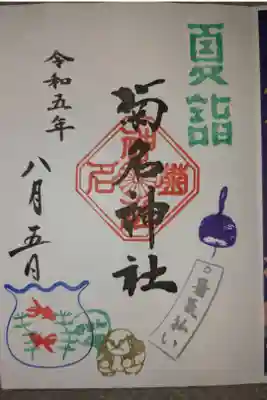 夏詣
菊名神社
令和五年
八月五日
暑気払い